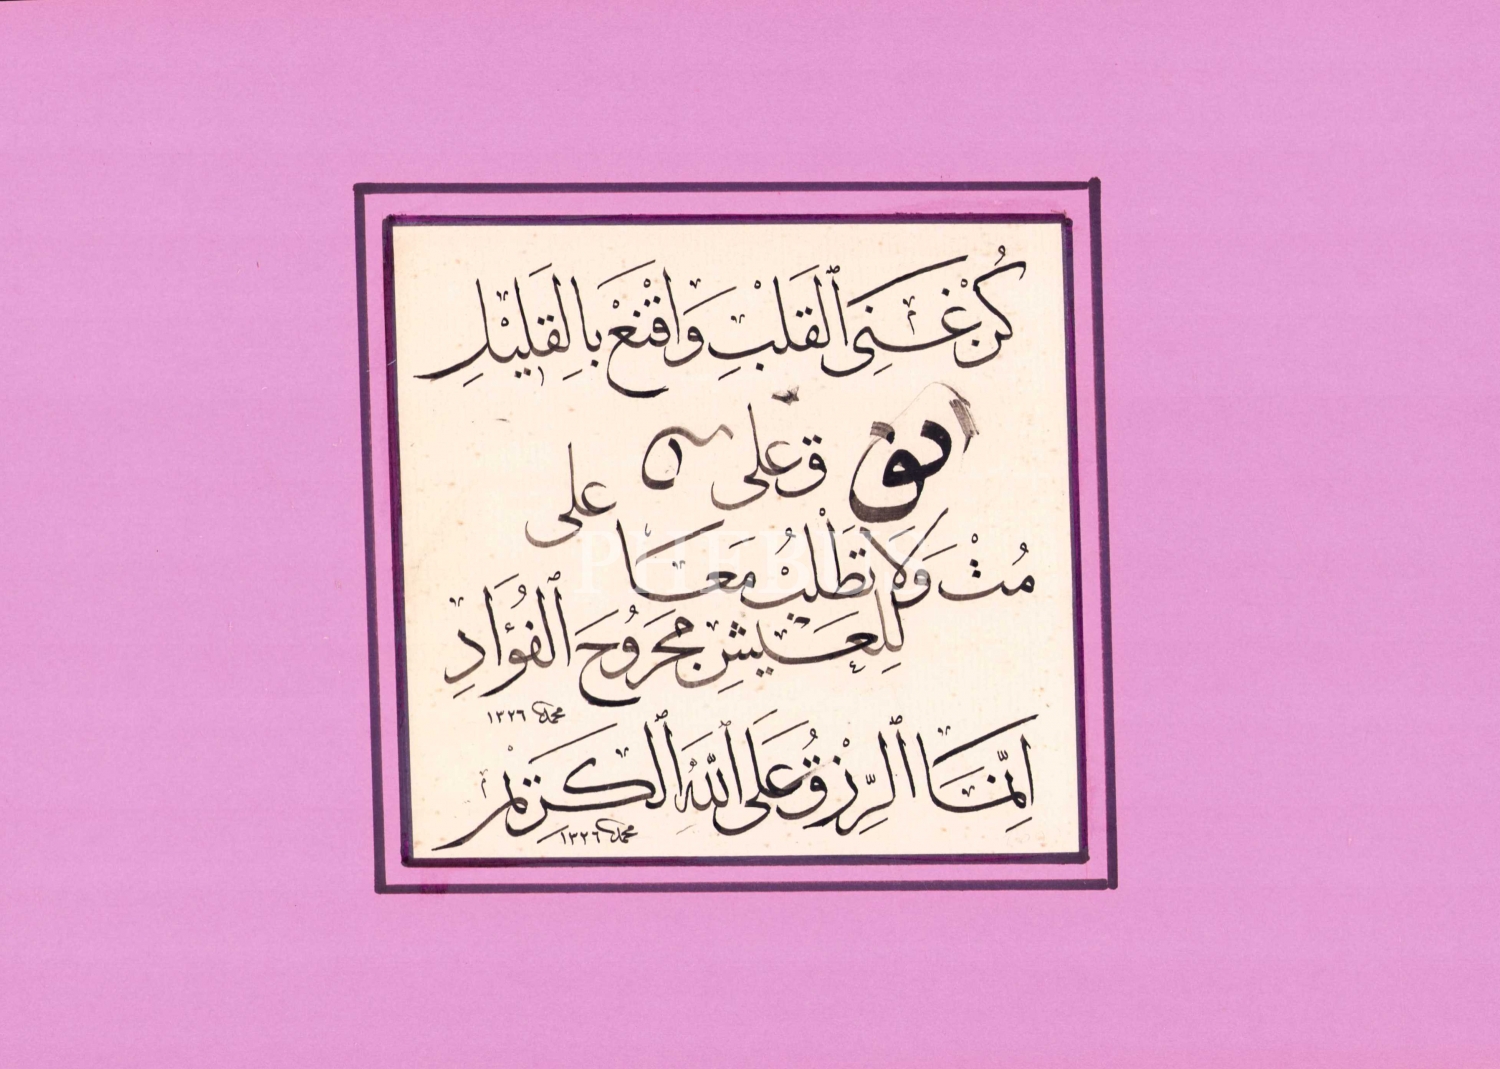 كُنْ غَنِىَّ ٱلْقَلْبِ وَاقْنَعْ بِالْقَلِيْلِ
ق على
على
مُتْ وَلَا تَطْلُبْ مَعَا
لِلْعَيْشِ مَجْرُوحَ ٱلْفُؤَادِ
محمد ١٣٢٦
اِنَّمَا ٱلرِّزْقُ عَلَى ٱللّٰهِ ٱلْكَرِيْمْ
محمد ١٣٢٦
PHEBUS